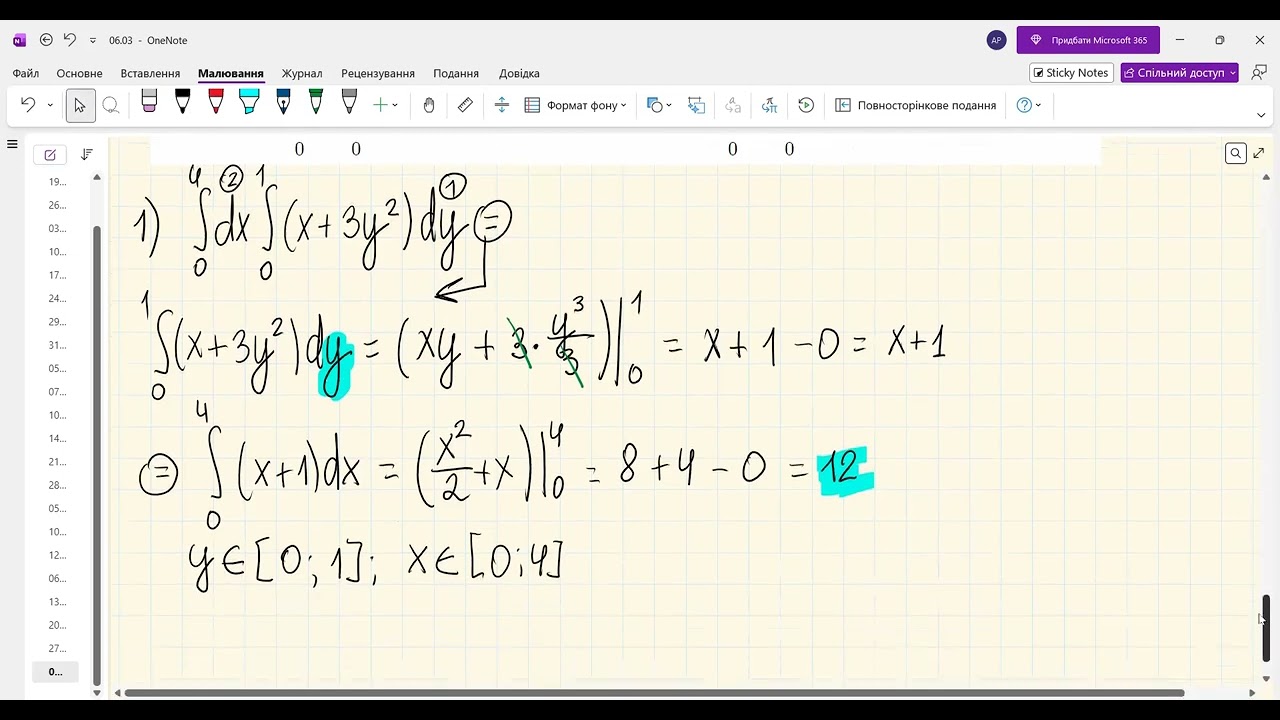 06.03 - OneNote
AP
Придбати Microsoft 365
Файл Основне Вставлення Малювання Журнал Рецензування Подання Довідка
Sticky Notes
Спільний доступ
Формат фону
Повносторінкове подання
0 0 0 0
19...
26...
03...
10...
17...
24...
29...
31...
05...
07...
10...
14...
21...
28...
05...
10...
12...
06...
13...
20...
27...
0...
1) ∫₀⁴ dx② ∫₀¹ (x+3y²)dy① ⊜
∫₀¹ (x+3y²)dy = (xy + 3·y³/3)|₀¹ = x+1-0 = x+1
⊜ ∫₀⁴ (x+1)dx = (x²/2+x)|₀⁴ = 8+4-0 = 12
y∈[0;1]; x∈[0;4]